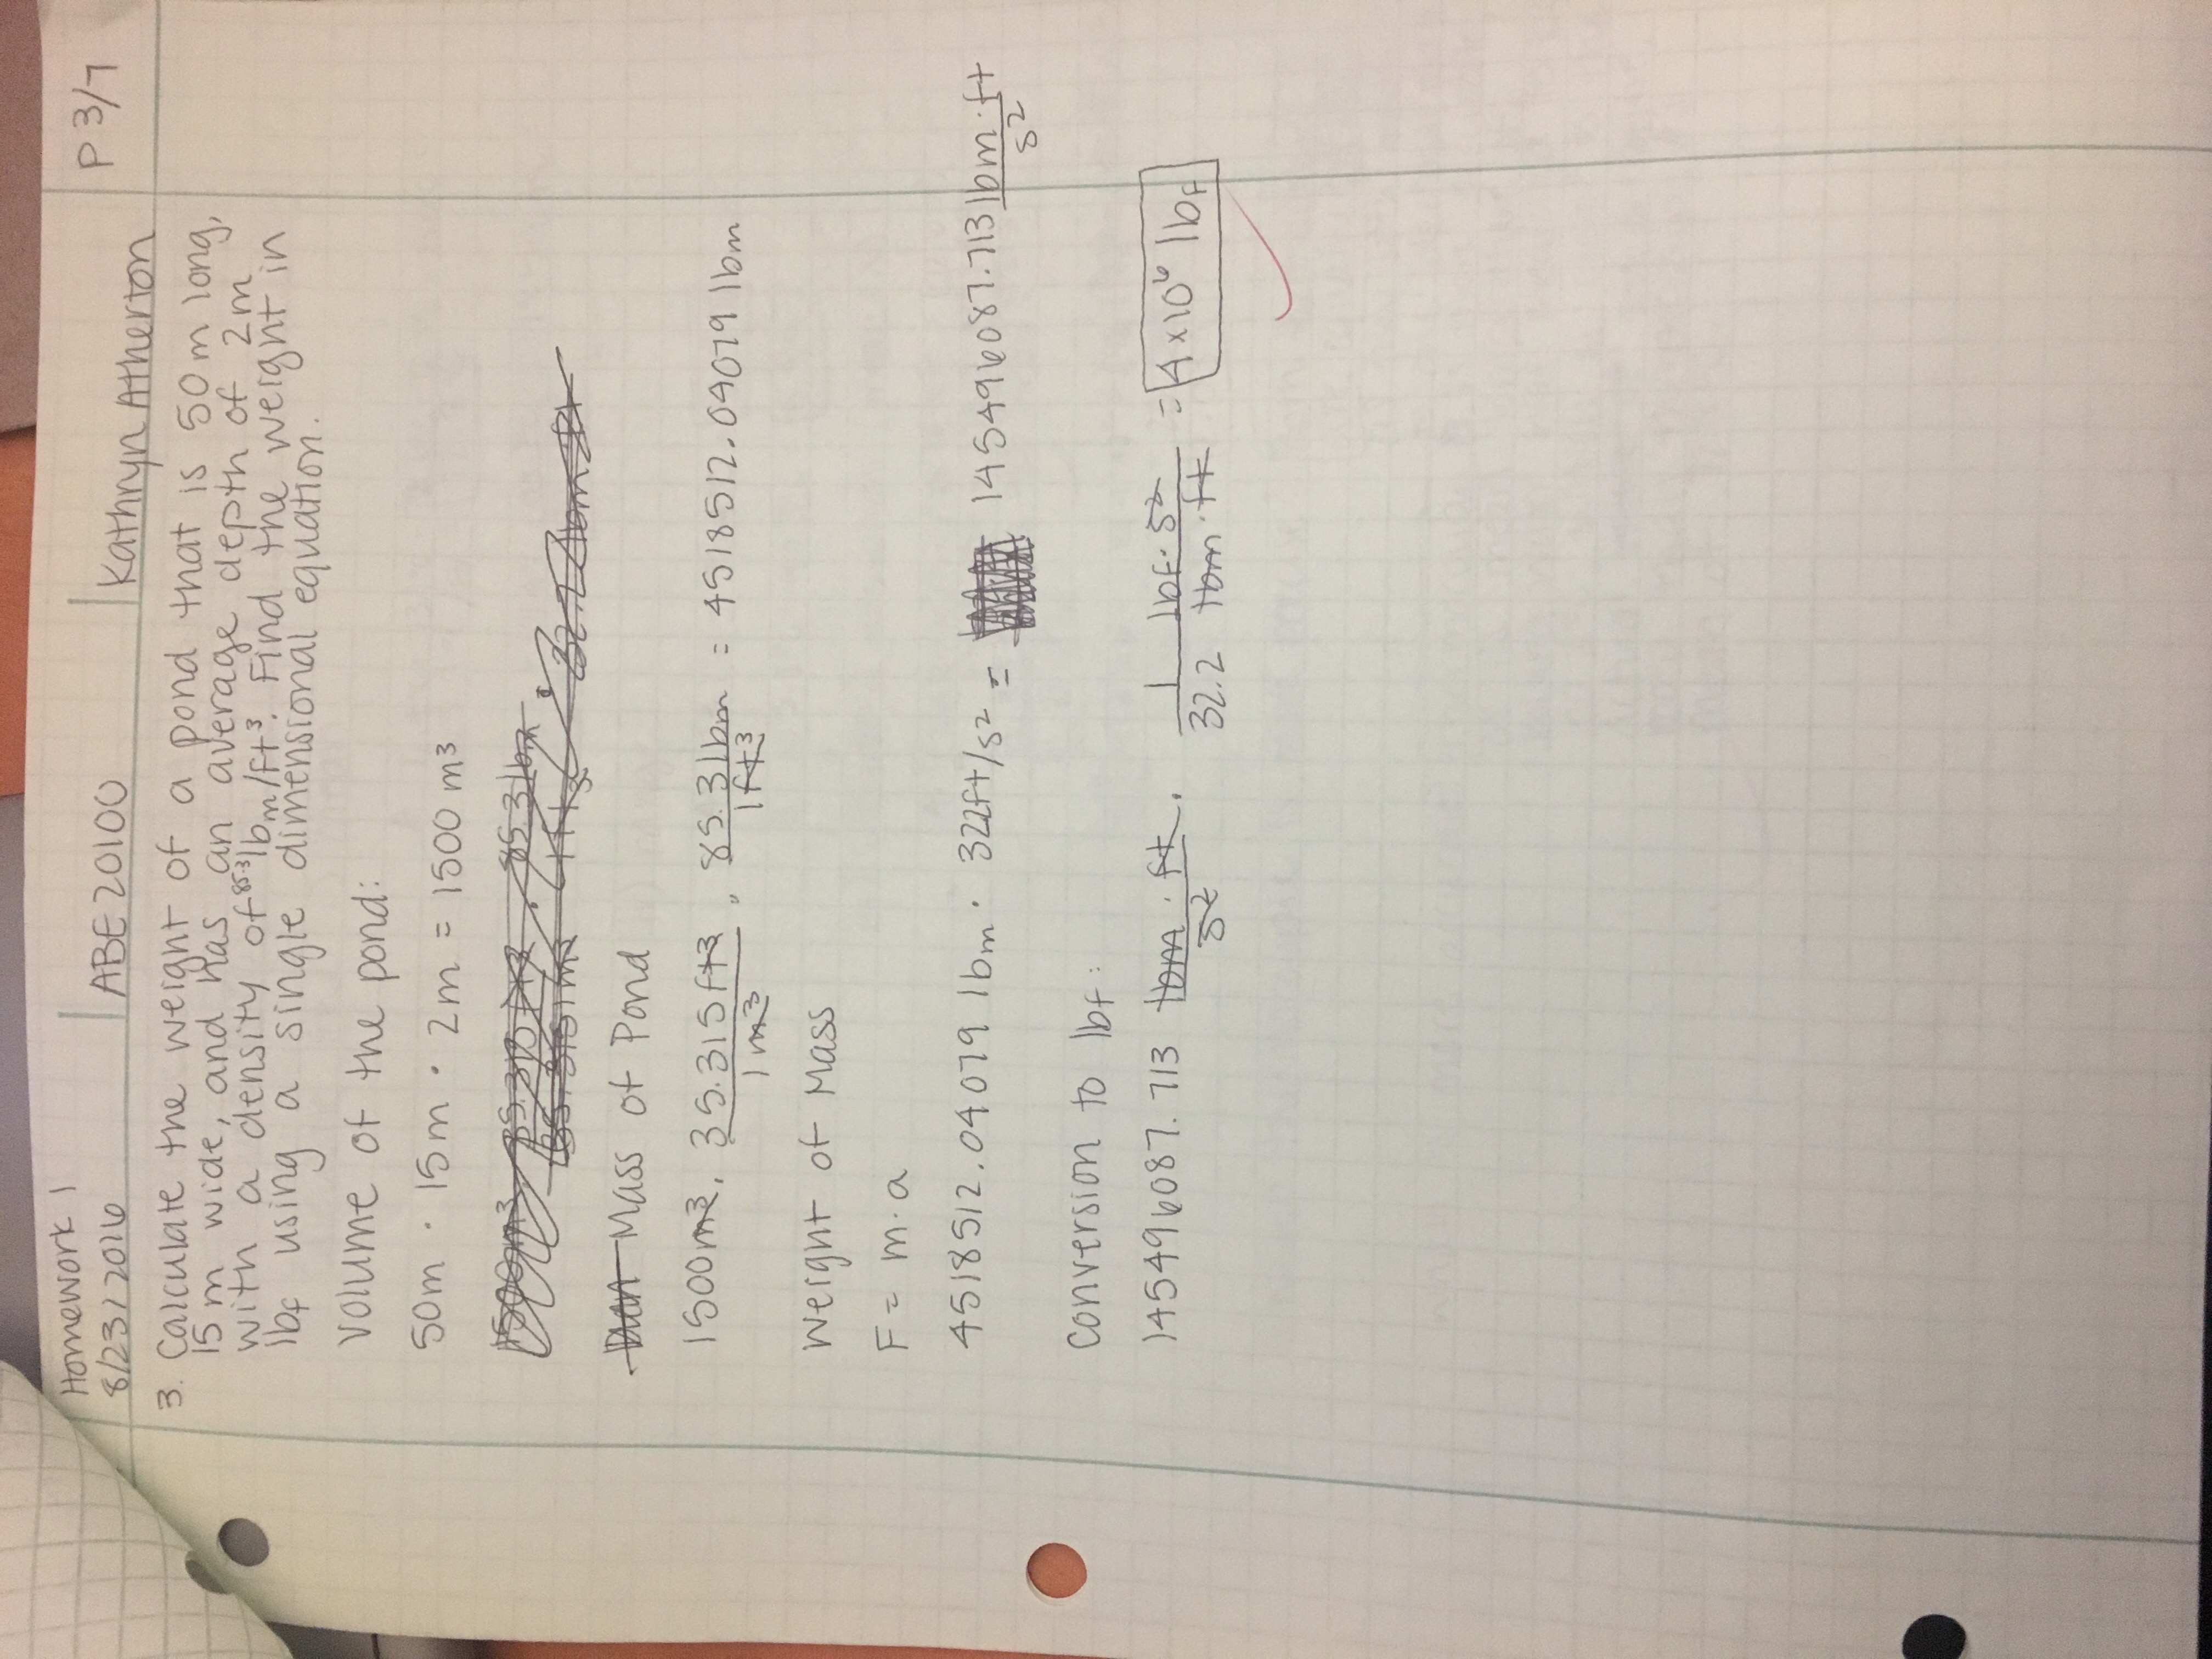 Homework 1
8/23/2016
ABE 20100
Kathryn Atherton
P 3/7
3. Calculate the weight of a pond that is 50m long,
15m wide, and has an average depth of 2m
with a density of 85.3 lbm/ft³. Find the weight in
lbf using a single dimensional equation.
Volume of the pond:
50m · 15m · 2m = 1500 m³
1500 m³ 35.315 ft³ · 85.3 lbm ·
35.3151 m³ 1 ft³ 32.2 lbm ft
Mass of Pond
1500m³ · 35.315 ft³ / 1 m³ · 85.3 lbm / 1 ft³ = 4518512.04079 lbm
Weight of Mass
F = m·a
4518512.04079 lbm · 32.2ft/s² = 145496087.713 lbm·ft / s²
Conversion to lbf:
145496087.713 lbm · ft / s² · 1 lbf·s² / 32.2 lbm·ft = 4x10⁶ lbf